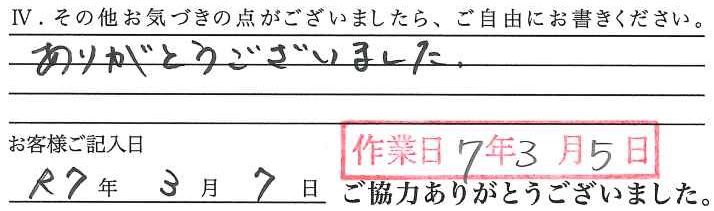 Ⅳ．その他お気づきの点がございましたら、ご自由にお書きください。
ありがとうございました.
お客様ご記入日
作業日 7年3月5日
R7年 3月 7日
ご協力ありがとうございました。